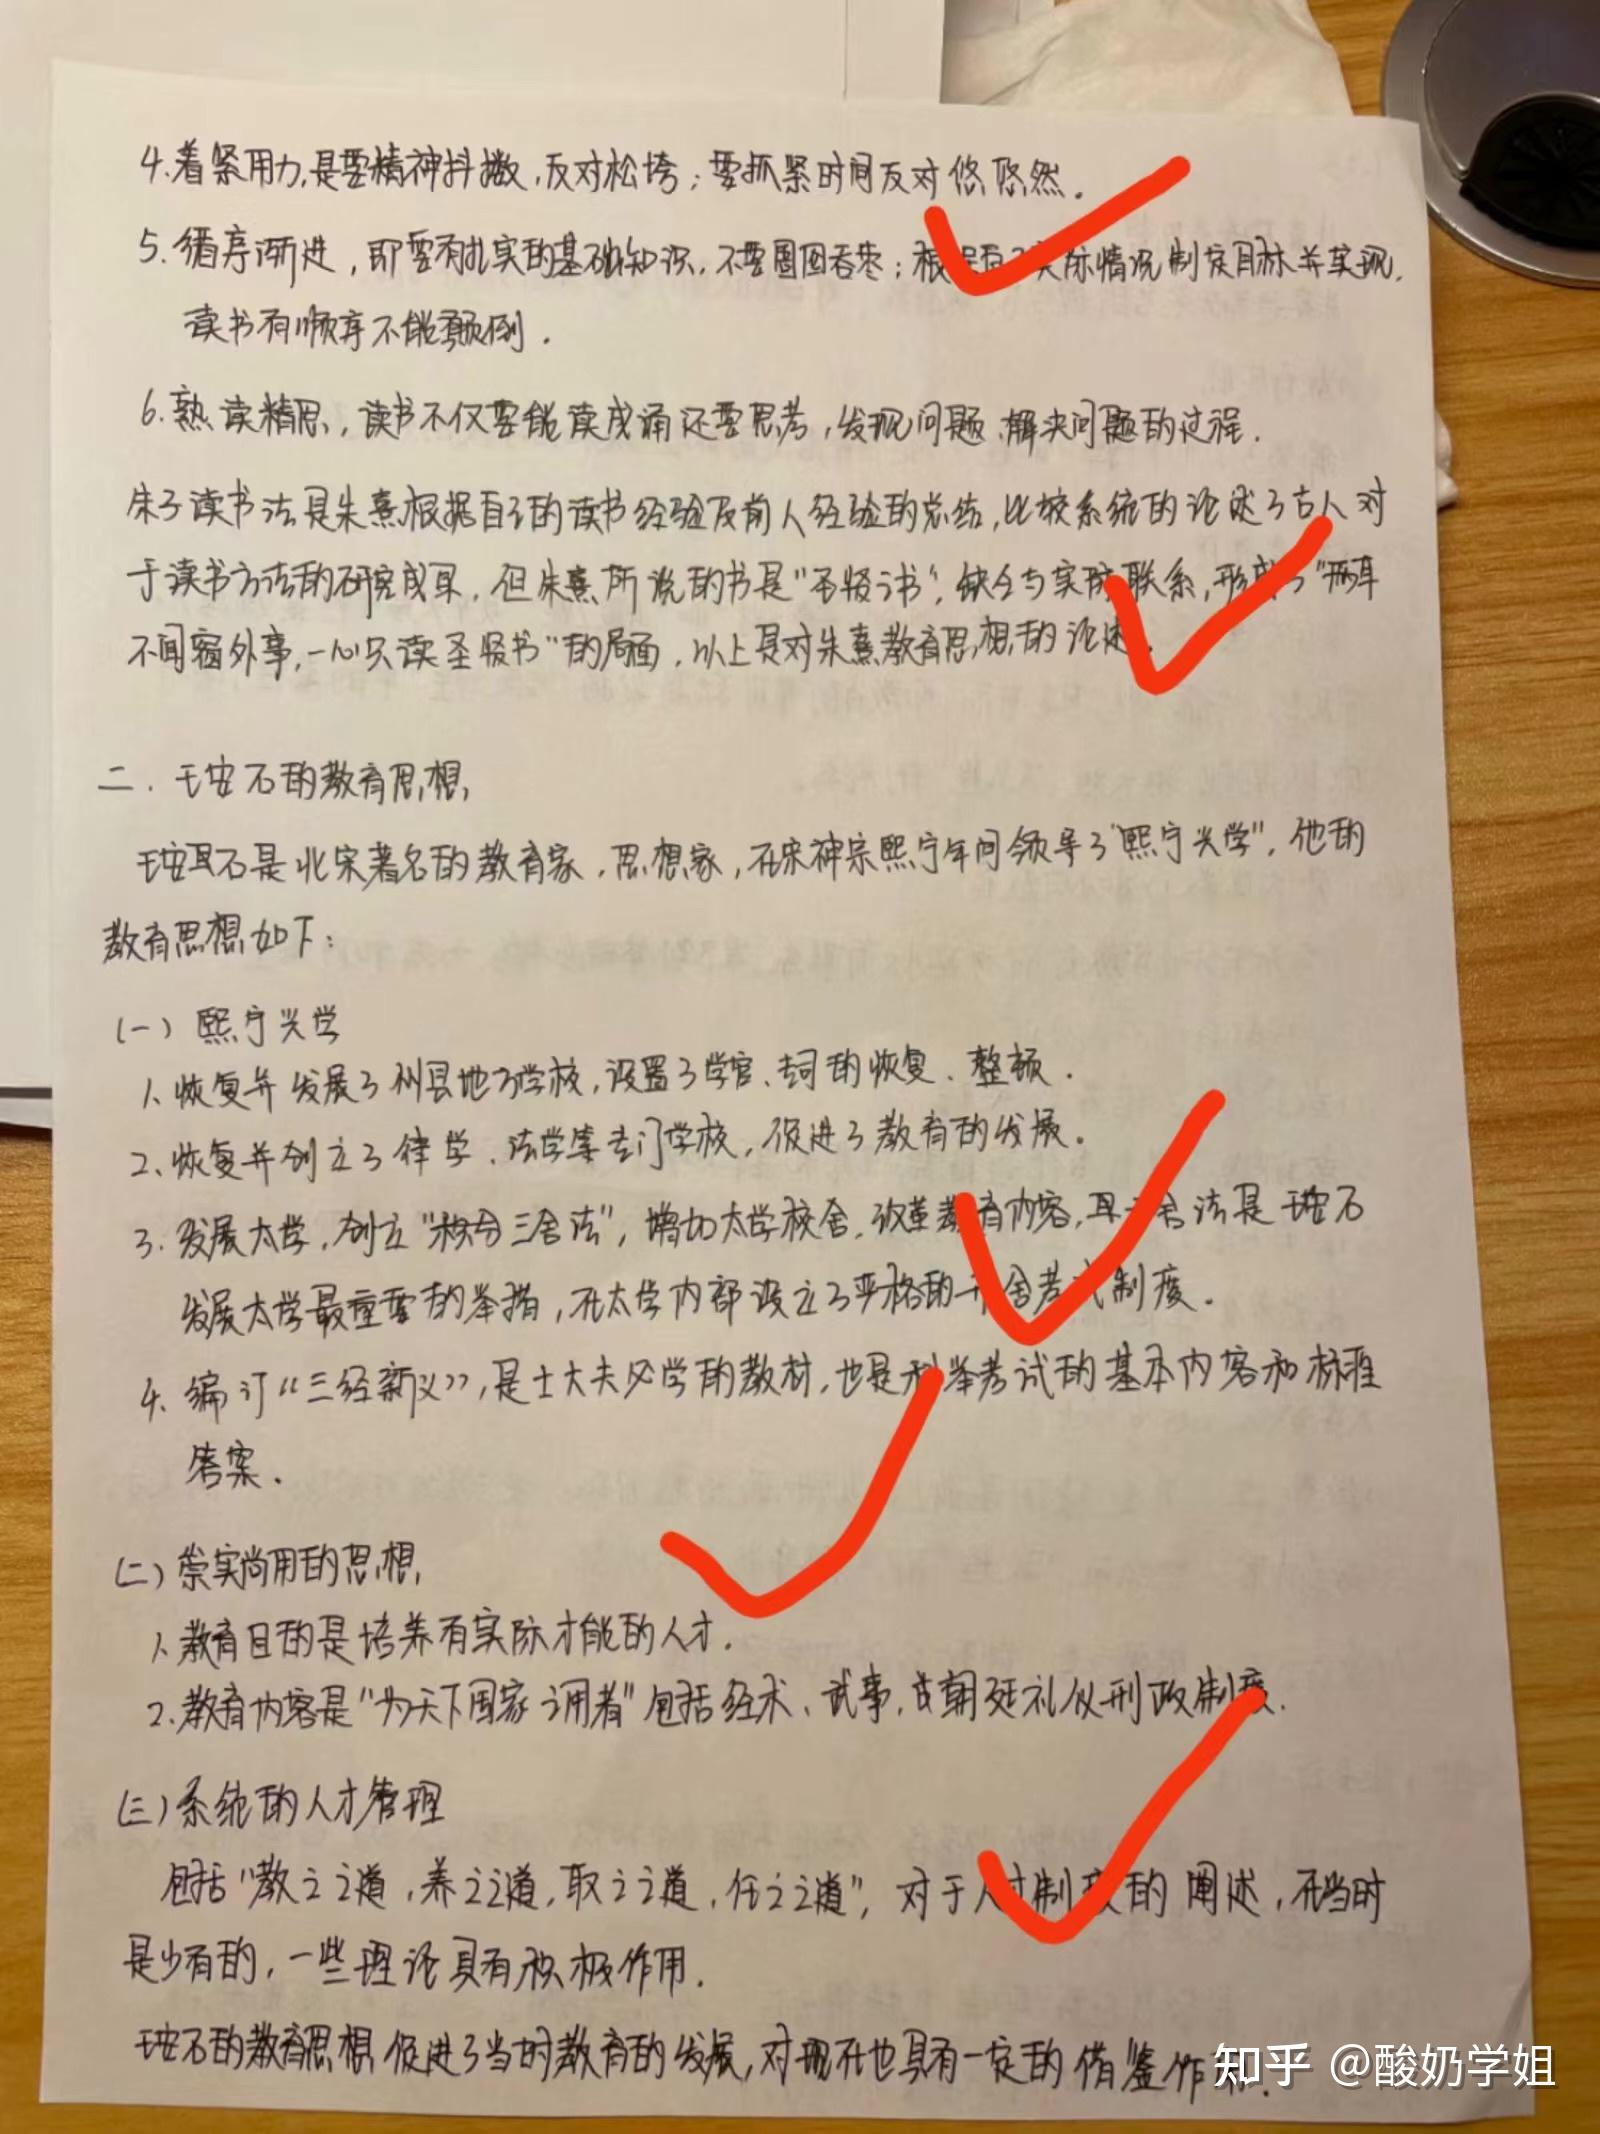 4.着紧用力,是要精神抖擞,反对松垮;要抓紧时间反对悠悠然.
5.循序渐进,即要有扎实的基础知识,不要囫囵吞枣;根据自己实际情况制定目标并实现,
读书有顺序不能颠倒.
6.熟读精思,读书不仅要能读成诵还要思考,发现问题、解决问题的过程.
朱子读书法是朱熹根据自己的读书经验及前人经验的总结,比较系统的论述了古人对
于读书方法的研究成果,但朱熹所说的书是"圣贤之书",缺乏与实际联系,形成了"两耳
不闻窗外事,一心只读圣贤书"的局面,以上是对朱熹教育思想的论述.
二.王安石的教育思想
王安石是北宋著名的教育家,思想家,在宋神宗熙宁年间领导了"熙宁兴学",他的
教育思想如下:
(一)熙宁兴学
1.恢复并发展了州县地方学校,设置了学官、的恢复、整顿.
2.恢复并创立了律学、法学等专门学校,促进了教育的发展.
3.发展太学,创立"积分三舍法",增加太学校舍,改革教育内容,舍法是王安石
发展太学最重要的举措,在太学内部设立了严格的升舍考试制度.
4.编订《三经新义》,是士大夫必学的教材,也是科举考试的基本内容和标准
答案.
(二)崇实尚用的思想
1.教育目的是培养有实际才能的人才.
2.教育内容是"为天下国家之用者"包括经术、武事,及朝廷礼仪刑政制度.
(三)系统的人才管理
包括"教之之道,养之之道,取之之道,任之之道",对于人才制度的阐述,在当时
是少有的,一些理论具有积极作用.
王安石的教育思想促进了当时教育的发展,对现在也具有一定的借鉴作用.
知乎 @酸奶学姐